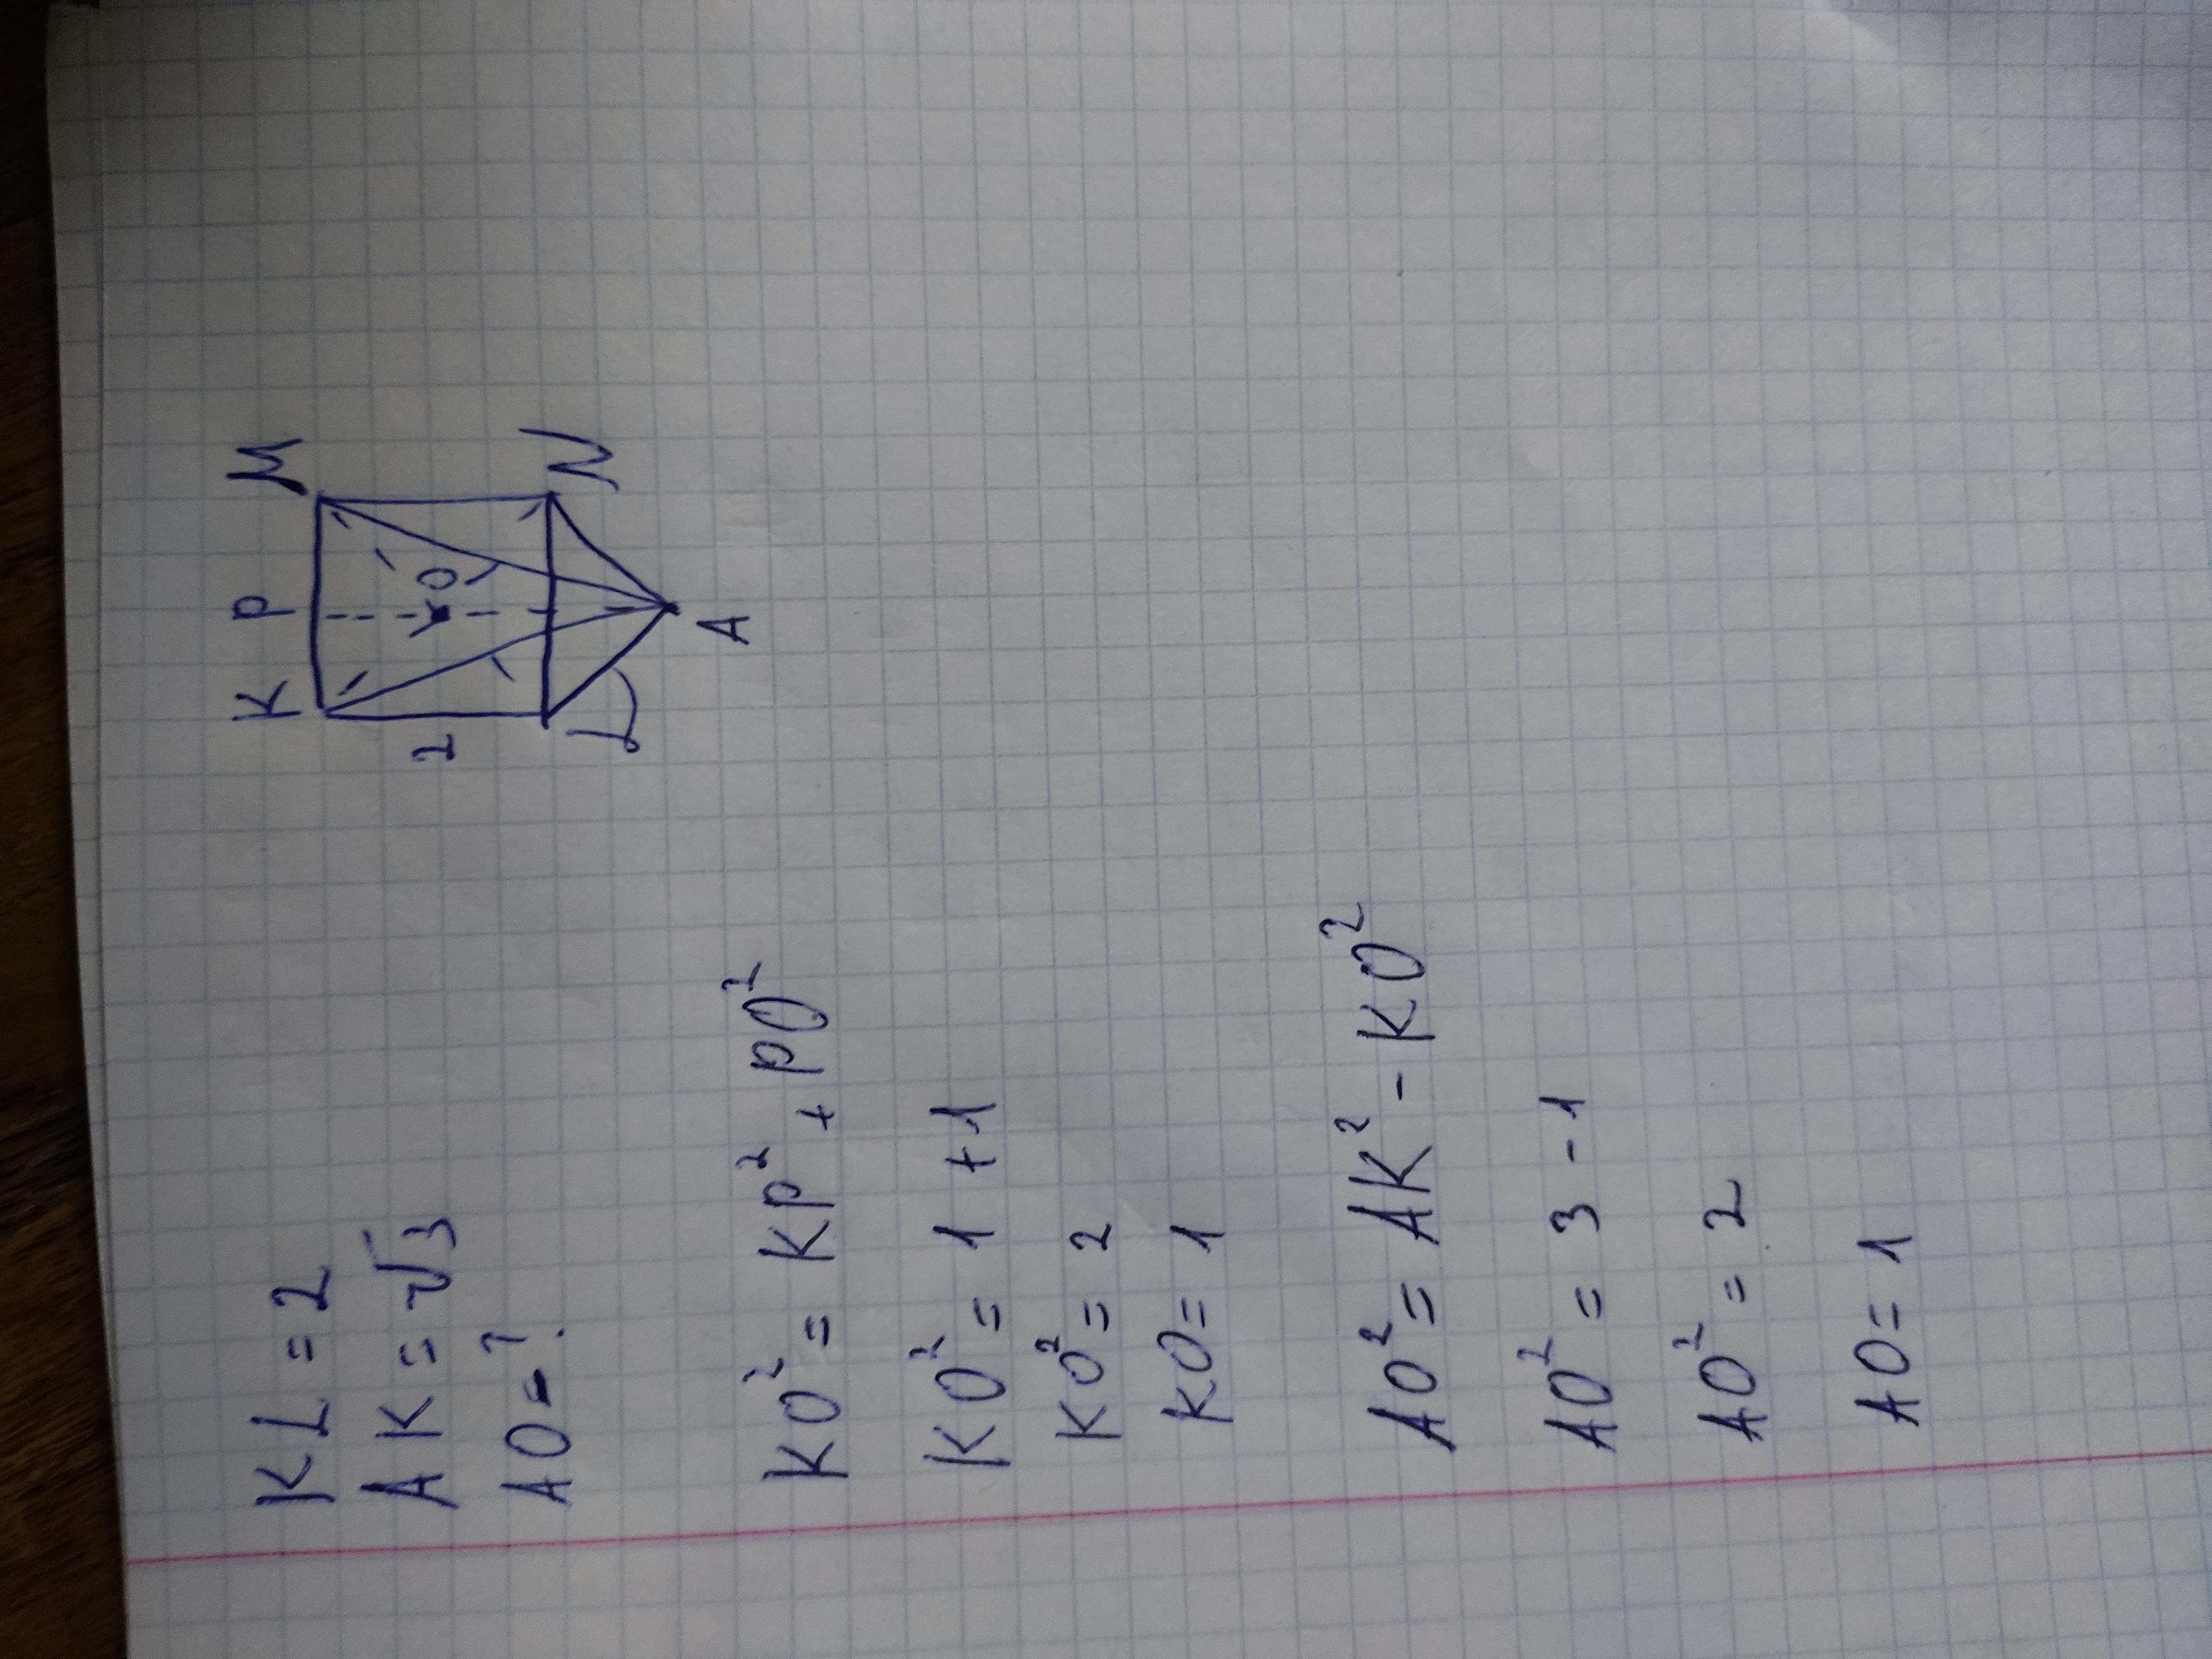 KL = 2
AK = √3
AO = ?
KO² = KP² + PO²
KO² = 1 + 1
KO² = 2
KO = 1
AO² = AK² - KO²
AO² = 3 - 1
AO² = 2
AO = 1
K P M
2
O
L N
A